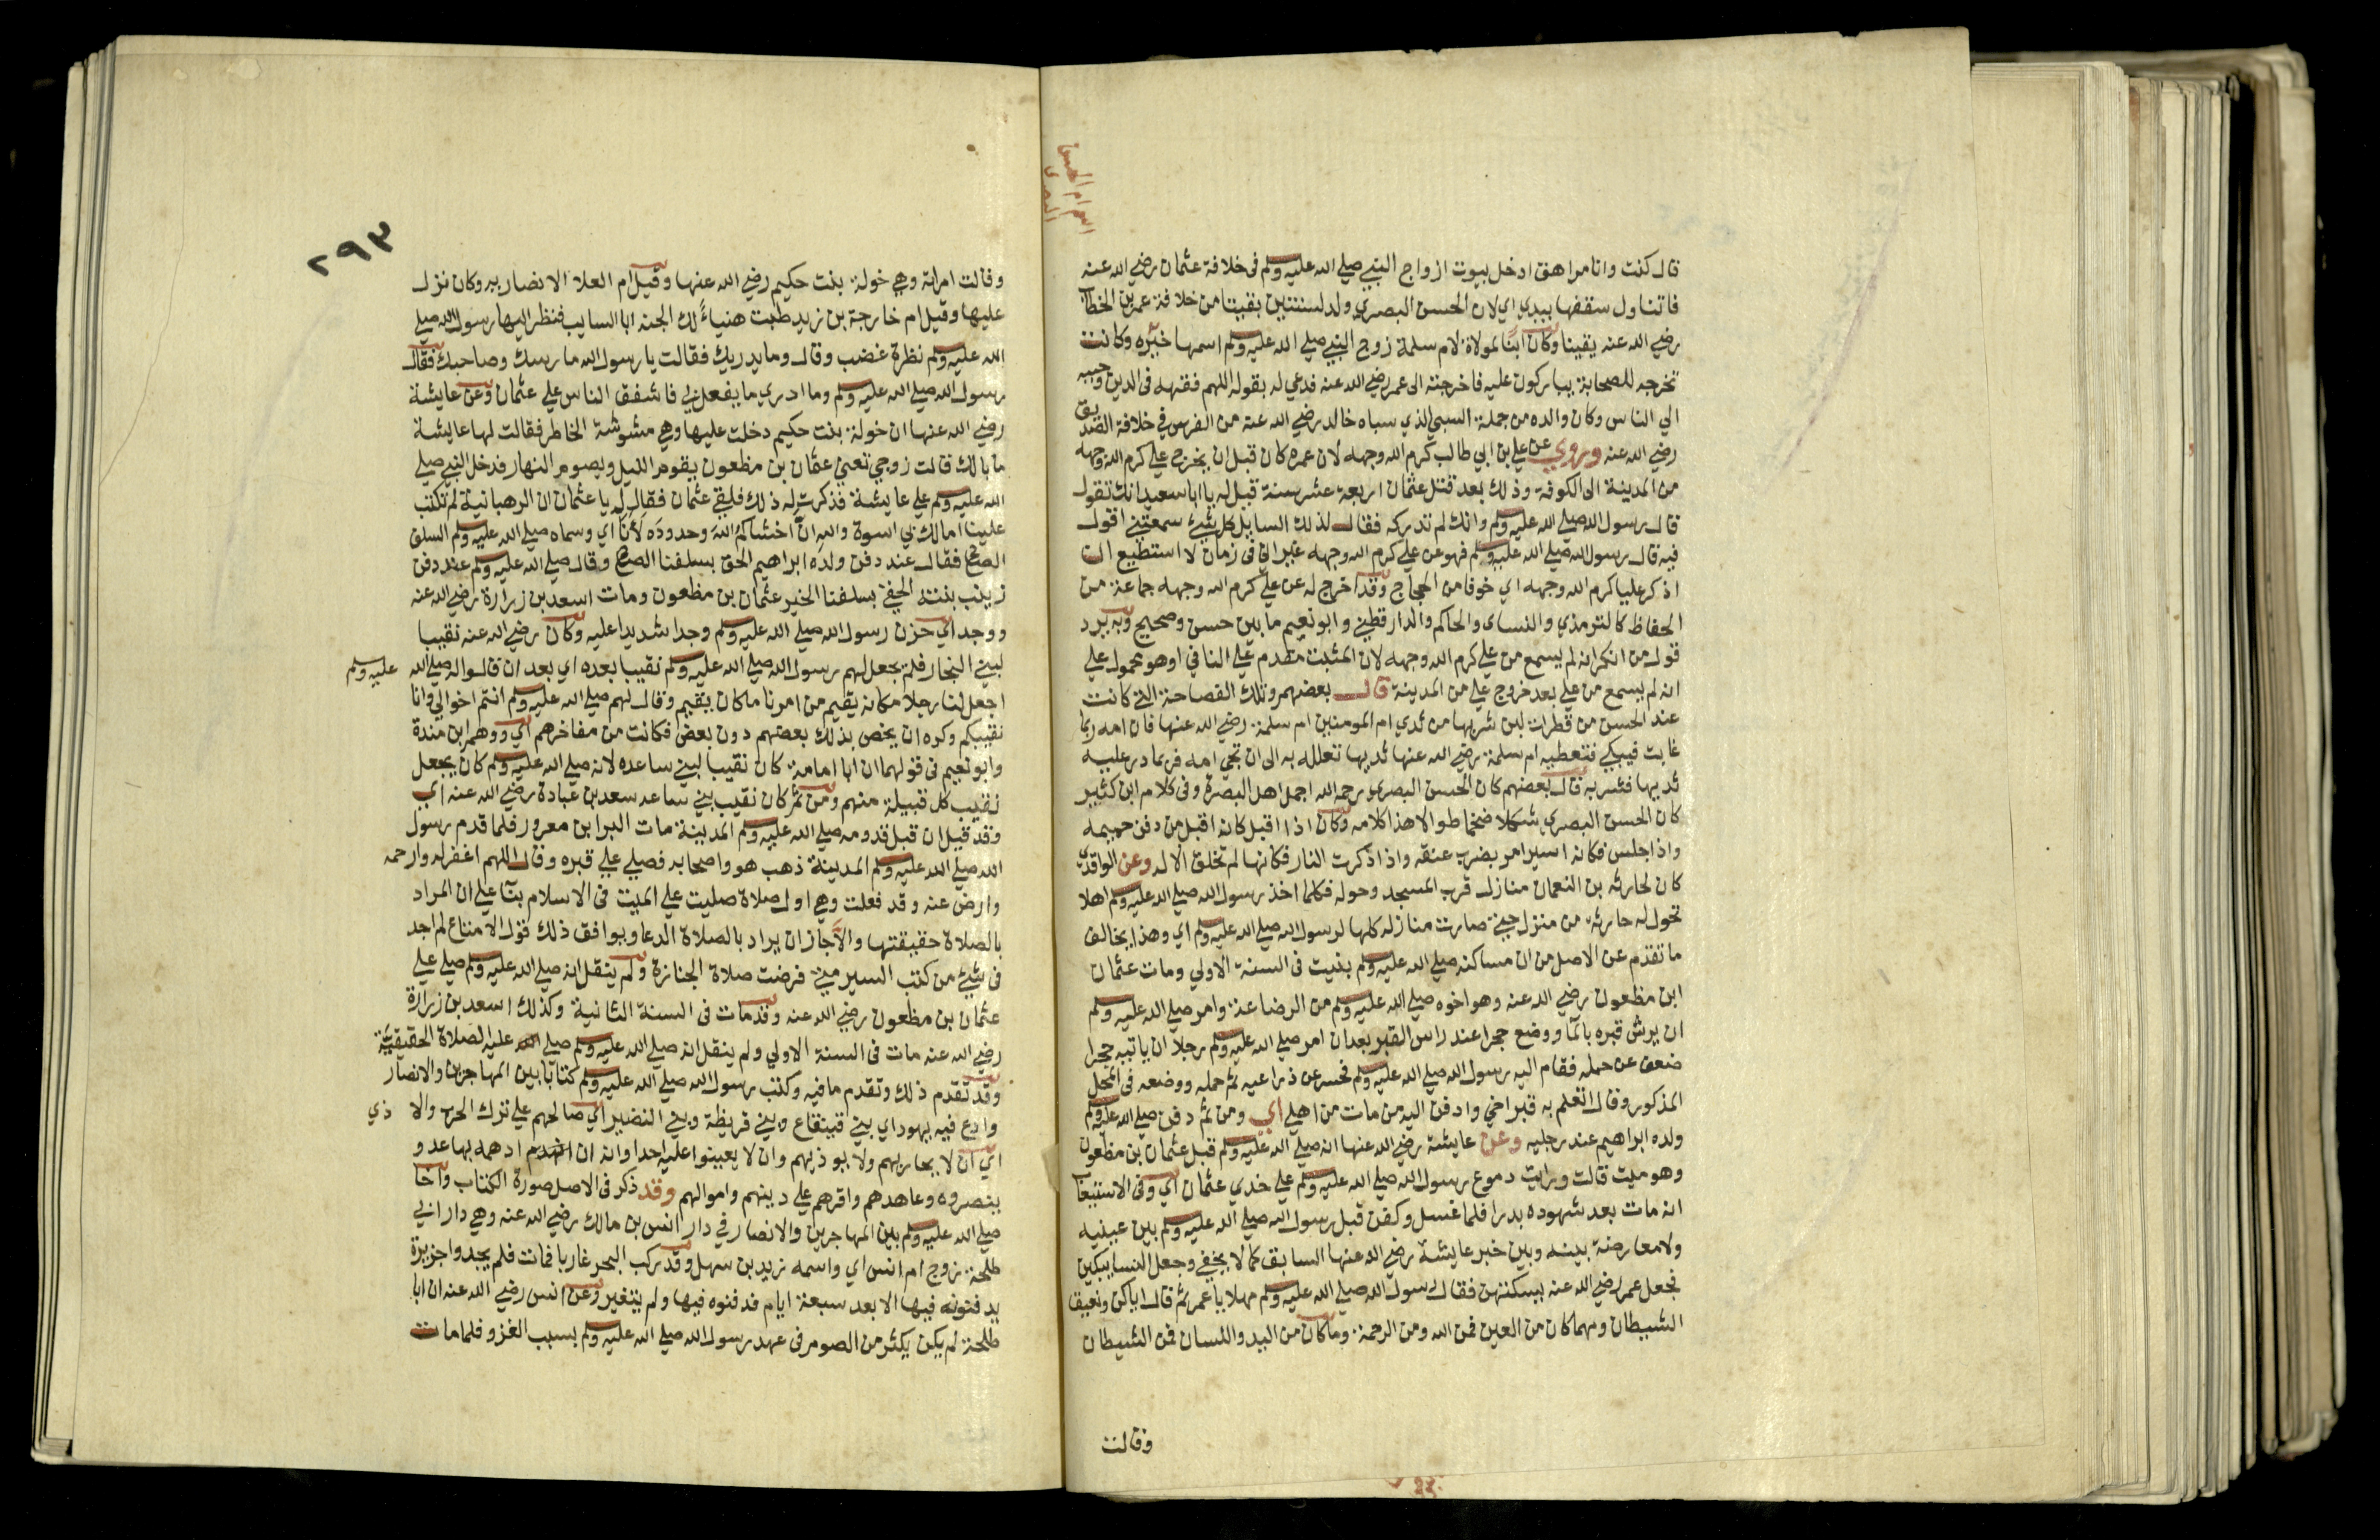 اسم ام الحسن
البصرى
قال كنت وانا مراهق ادخل بيوت ازواج النبي صلي الله عليه وسلم في خلافة عثمان رضي الله عنه
فاتناول سقفها بيدي اي لان الحسن البصري ولد لسنتين بقيتا من خلافة عمر بن الخطاب
رضي الله عنه يقينا وكان ابنا لمولاة لام سلمة زوج النبي صلي الله عليه وسلم اسمها خيره وكانت
تخرجه للصحابة يباركون عليه فاخرجته الى عمر رضي الله عنه فدعي له بقوله اللهم فقهه في الدين وحببه
الي الناس وكان والده من جملة السبي الذي سباه خالد رضي الله عنه من الفرس في خلافة الصديق
رضي الله عنه وروي عن علي بن ابي طالب كرم الله وجهه لان عمره كان قبل ان يخرج علي كرم الله وجهه
من المدينة الى الكوفة وذلك بعد قتل عثمان اربعة عشر سنة قيل له يا ابا سعيد انك تقول
قال رسول الله صلي الله عليه وسلم وانك لم تدركه فقال لذلك السايل كل شيء سمعتني اقول
فيه قال رسول الله صلي الله عليه وسلم فهو عن علي كرم الله وجهه غير اني في زمان لا استطيع ان
اذكر عليا كرم الله وجهه اي خوفا من الحجاج وقد اخرج له عن علي كرم الله وجهه جماعة من
الحفاظ كالترمذي والنساى والحاكم والدارقطني وابو نعيم ما بين حسن وصحيح وبه يرد
قول من انكر انه لم يسمع من علي كرم الله وجهه لان المثبت مقدم علي النافي او هو محمول علي
انه لم يسمع من علي بعد خروج علي من المدينة قال بعضهم وتلك الفصاحة التي كانت
عند الحسن من قطرات لبن شربها من ثدي ام المومنين ام سلمة رضي الله عنها فان امه ربما
غابت فيبكي فتعطيه ام سلمة رضي الله عنها ثديها تعلله به الى ان تجي امه فربما در عليه
ثديها فشربه قال بعضهم كان الحسن البصري رحمه الله اجمل اهل البصرة وفي كلام ابن كثير
كان الحسن البصري شكلا ضخما طوالا هذا كلامه وكان اذا اقبل كانه اقبل من دفن حميمه
واذا جلس فكانه اسير امر بضرب عنقه واذا ذكرت النار فكانها لم تخلق الا له وعن الواقدي
كان لحارثه بن النعمان منازل قرب المسجد وحوله فكلما اخذ رسول الله صلي الله عليه وسلم اهلا
تحول له حارثه من منزل حتي صارت منازله كلها لرسول الله صلي الله عليه وسلم اي وهذا يخالف
ما تقدم عن الاصل من ان مساكنه صلي الله عليه وسلم بنيت في السنة الاولي ومات عثمان
ابن مظعون رضي الله عنه وهو اخوه صلي الله عليه وسلم من الرضاعة وامر صلي الله عليه وسلم
ان يرش قبره بالما ووضع حجرا عند راس القبر بعد ان امر صلي الله عليه وسلم رجلا ان ياتيه حجرا
ضعف عن حمله فقام اليه رسول الله صلي الله عليه وسلم فحسر عن ذراعيه ثم حمله ووضعه في المحل
المذكور وقال اتعلم به قبر اخي وادفن اليه من مات من اهلي اي ومن ثم دفن صلي الله عليه وسلم
ولده ابراهيم عند رجليه وعن عايشة رضي الله عنها انه صلي الله عليه وسلم قبل عثمان بن مظعون
وهو ميت قالت ورايت دموع رسول الله صلي الله عليه وسلم علي خدي عثمان اي وفي الاستيعاب
انه مات بعد شهوده بدرا فلما غسل وكفن قبل رسول الله صلي الله عليه وسلم بين عينيه
ولا معارضة بينه وبين خبر عايشة رضي الله عنها السابق كما لا يخفي وجعل النسا يبكين
فجعل عمر رضي الله عنه يسكتهن فقال رسول الله صلي الله عليه وسلم مهلا يا عمر ثم قال اياكن ونعيق
الشيطان ومهما كان من العين فمن الله ومن الرحمة وما كان من اليد واللسان فمن الشيطان
وقالت
٢٩٣
وقالت امراة وهي خولة بنت حكيم رضي الله عنها وقيل ام العلا الانصاريه وكان نزل
عليها وقيل ام خارجة بن زيد طبت هنياء لك الجنه ابا السايب فنظر اليها رسول الله صلي
الله عليه وسلم نظرة غضب وقال وما يدريك فقالت يا رسول الله مارسك وصاحبك فقال
رسول الله صلي الله عليه وسلم وما ادري ما يفعل بي فاشفق الناس علي عثمان وعن عايشة
رضي الله عنها ان خولة بنت حكيم دخلت عليها وهي مشوشة الخاطر فقالت لها عايشة
ما بالك قالت زوجي تعني عثمان بن مظعون يقوم الليل ويصوم النهار فدخل النبي صلي
الله عليه وسلم علي عايشة فذكرت له ذلك فلقي عثمان فقال له يا عثمان ان الرهبانية لم تكتب
علينا امالك بي اسوة والله ان اخشاكم الله وحدوده لانا اي وسماه صلي الله عليه وسلم السلف
الصالح فقال عند دفن ولده ابراهيم الحق بسلفنا الصالح وقال صلي الله عليه وسلم عند دفن
زينب بنته الحقي بسلفنا الخير عثمان بن مظعون ومات اسعد بن زرارة رضي الله عنه
ووجد اي حزن رسول الله صلي الله عليه وسلم وجدا شديدا عليه وكان رضي الله عنه نقيبا
لبني النجار فلم يجعل لهم رسول الله صلي الله عليه وسلم نقيبا بعده اي بعد ان قالوا له صلي الله عليه وسلم
اجعل لنا رجلا مكانه يقيم من امرنا ما كان يقيم وقال لهم صلي الله عليه وسلم انتم اخوالي وانا
نقيبكم وكره ان يخص بذلك بعضهم دون بعض فكانت من مفاخرهم اي ووهم ابن مندة
وابو نعيم في قولهما ان ابا امامة كان نقيبا لبني ساعده لانه صلي الله عليه وسلم كان يجعل
نقيب كل قبيلة منهم ومن ثم كان نقيب بني ساعد سعد بن عبادة رضي الله عنه اي
وقد قيل ان قبل قدومه صلي الله عليه وسلم المدينة مات البرا بن معرور فلما قدم رسول
الله صلي الله عليه وسلم المدينة ذهب هو واصحابه فصلي علي قبره وقال اللهم اغفر له وارحمه
وارض عنه وقد فعلت وهي اول صلاة صليت علي الميت في الاسلام بنا علي ان المراد
بالصلاة حقيقتها والا جاز ان يراد بالصلاة الدعا ويوافق ذلك قول الامتاع لم اجد
في شيئ من كتب السير متي فرضت صلاة الجنازة ولم ينقل انه صلي الله عليه وسلم صلي علي
عثمان بن مظعون رضي الله عنه وقد مات في السنة الثانية وكذلك اسعد بن زرارة
رضي الله عنه مات في السنة الاولي ولم ينقل انه صلي الله عليه وسلم صلي عليه الصلاة الحقيقية
وقد تقدم ذلك وتقدم ما فيه وكتب رسول الله صلي الله عليه وسلم كتابا بين المهاجرين والانصار
وادع فيه يهود اي بني قينقاع وبني قريظة وبني النضير اي صالحهم علي ترك الحرب والاذي
اي ان لا يحاربهم ولا يوذيهم وان لا يعينوا عليه احدا وانه ان دهمه بها عدو
ينصروه وعاهدهم واقرهم علي دينهم واموالهم وقد ذكر في الاصل صورة الكتاب واخا
صلي الله عليه وسلم بين المهاجرين والانصار في دار انس بن مالك رضي الله عنه وهي دار ابي
طلحة زوج ام انس اي واسمه زيد بن سهل وقد ركب البحر غازيا فمات فلم يجدوا جزيرة
يدفنونه فيها الا بعد سبعة ايام فدفنوه فيها ولم يتغير وعن انس رضي الله عنه ان ابا
طلحة لم يكن يكثر من الصوم في عهد رسول الله صلي الله عليه وسلم بسبب الغزو فلما مات